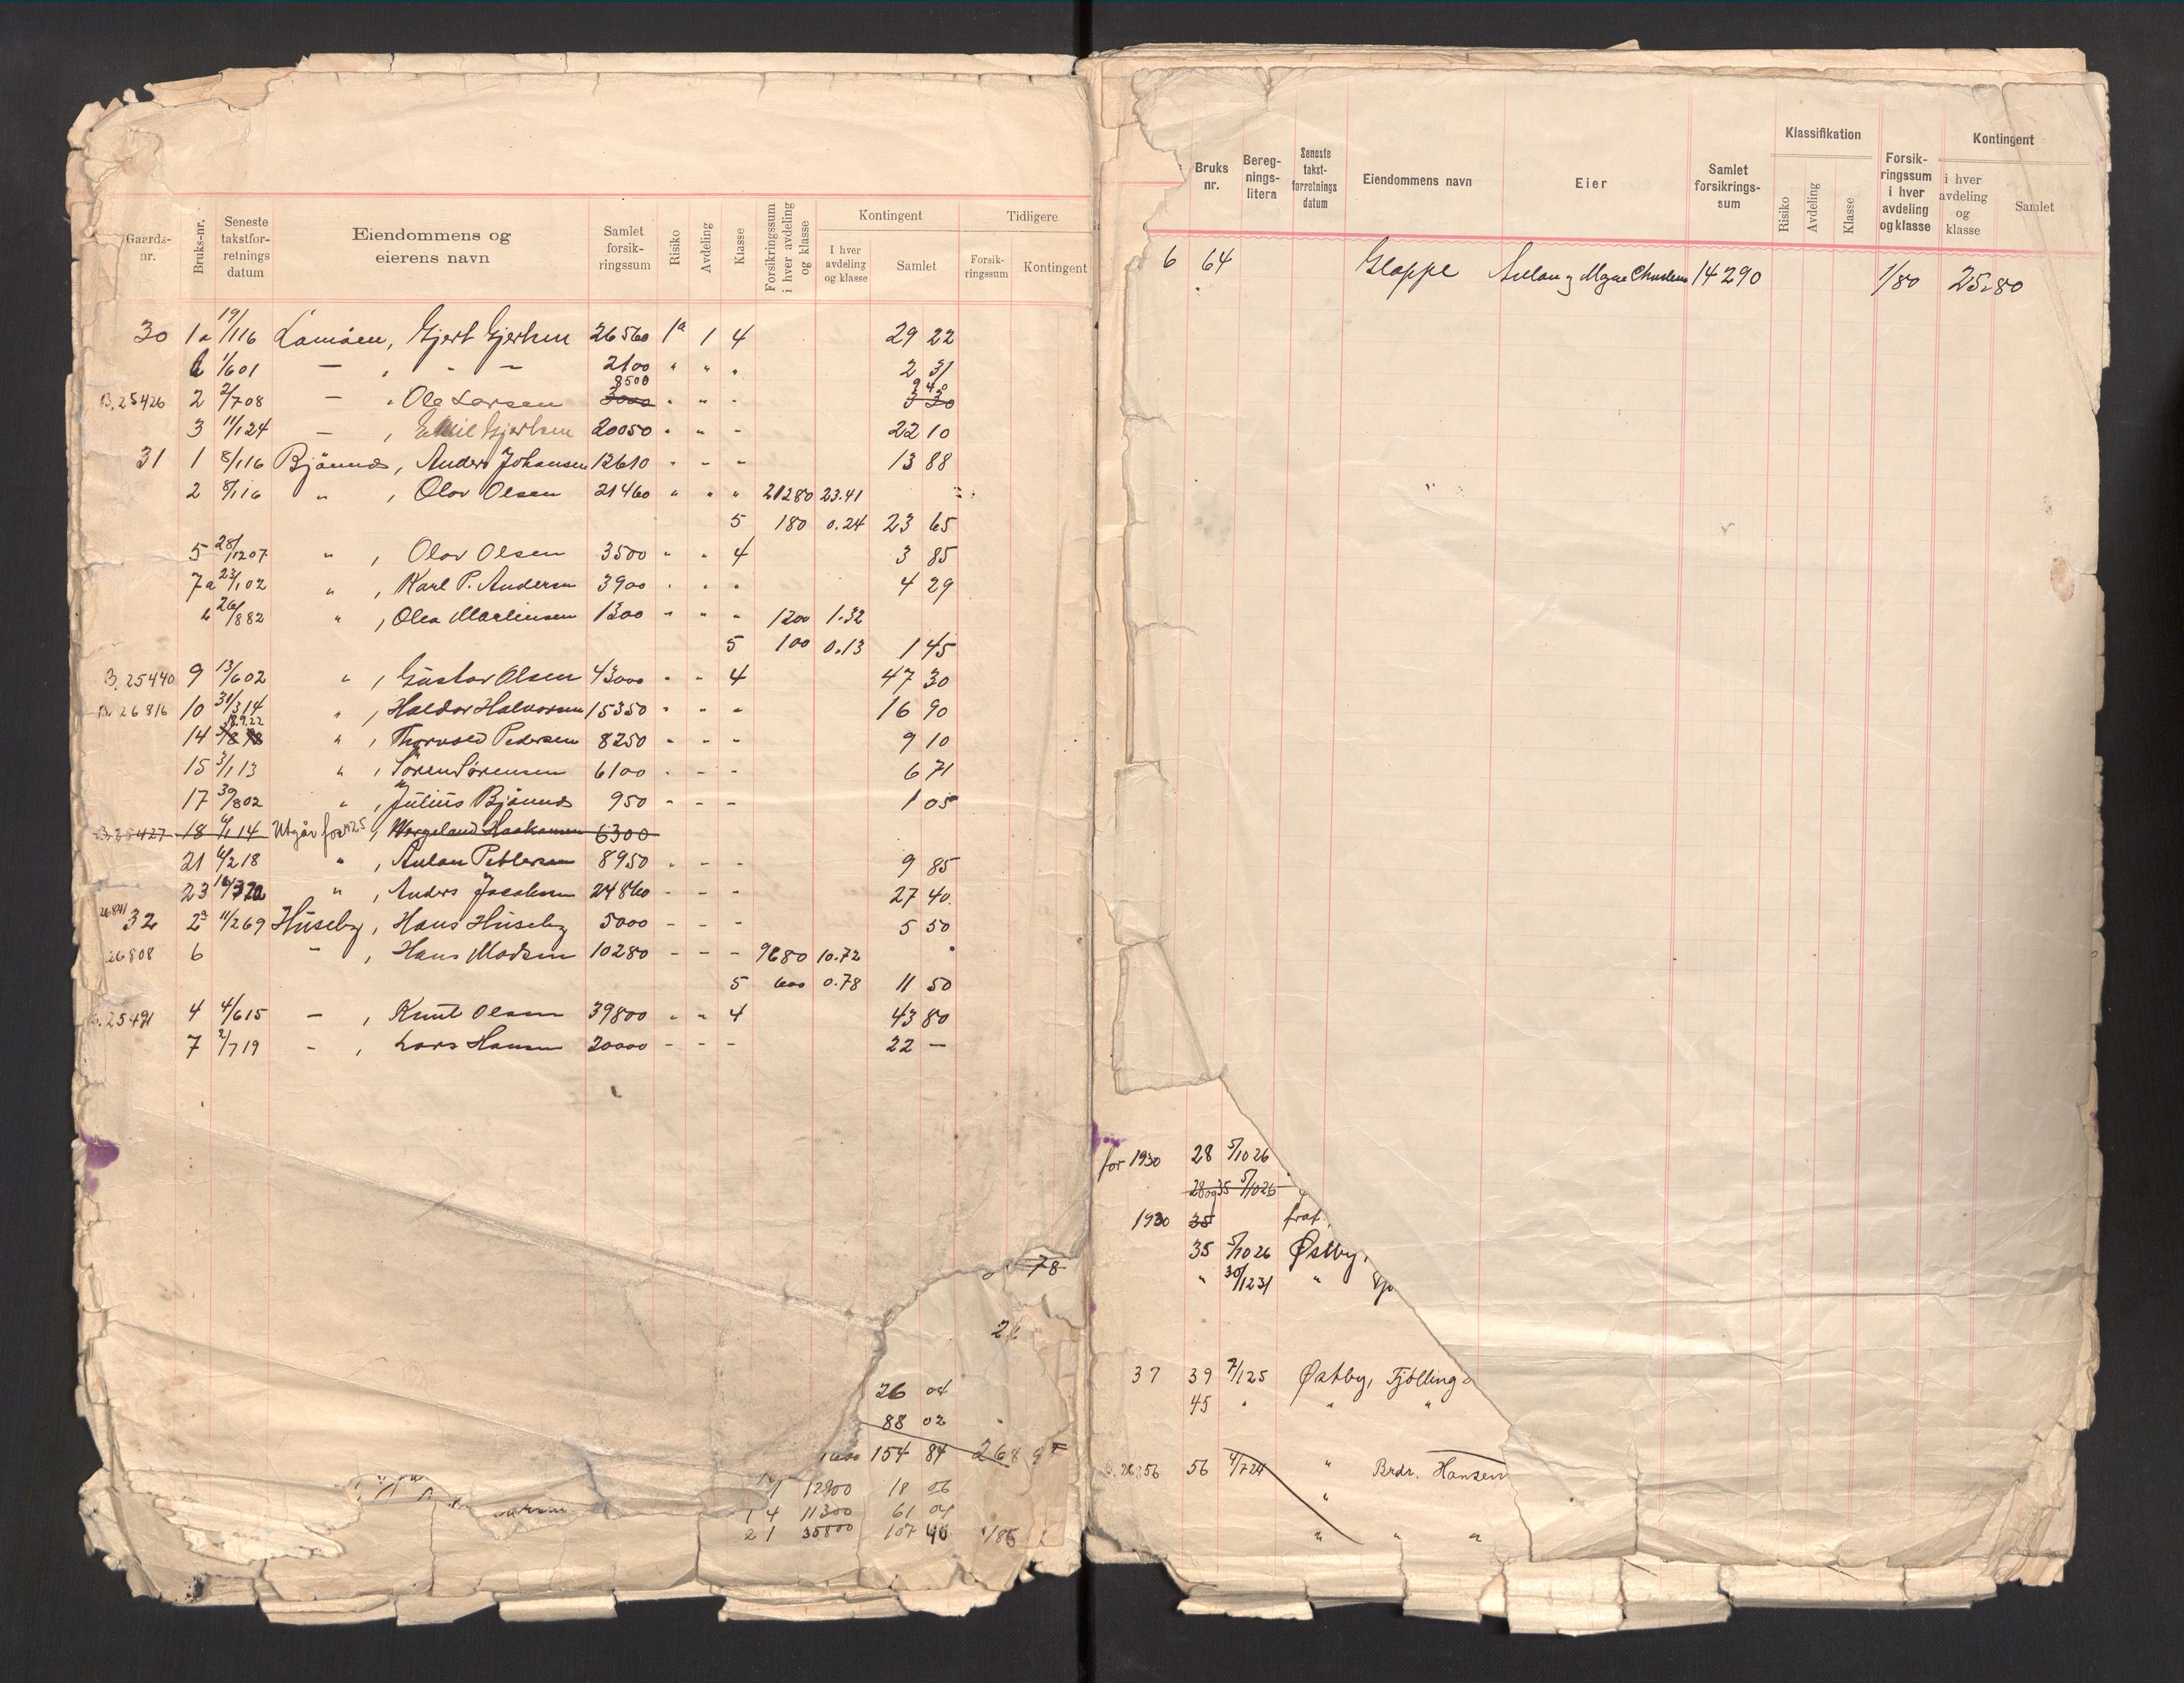 Gaards-nr. Bruks-nr. Seneste takstfor-retnings datum Eiendommens og eierens navn Samlet forsik-ringssum Risiko Avdeling Klasse Forsikringssum i hver avdeling og klasse Kontingent I hver avdeling og klasse Samlet Tidligere Forsik-ringssum Kontingent
30 1a 19/116 Lamöen, Gjert Gjertsen 26560 1a 1 4 29 22
b 1/601 — , - — 2100 " " " 2 31
8500 9 40
B.25426 2 2/708 — , Ole Larsen 3000 " " - 3 30
3 11/124 — , Emil Gjertsen 20050 " " - 22 10
31 1 8/116 Bjönnes, Anders Johansen 12610 - - - 13 88
2 8/116 " , Olav Olsen 21460 " " " 21280 23.41
5 180 0.24 23 65
5 28/1207 " , Olav Olsen 3500 " " 4 3 85
7a 23/102 " , Karl P. Andersen 3900 " " " 4 29
b 26/882 " , Olea Martinsen 1300 " " " 1200 1.32
5 100 0.13 1 45
B.25440 9 13/602 " , Gustav Olsen 43000 " " 4 47 30
B. 26816 10 31/314 " , Haldor Halvorsen 15350 " - - 16 90
18.9.22
14 " , Thorvald Pedersen 8250 - - - 9 10
15 3/113 " , Sören Sörensen 6100 - - - 6 71
17 30/802 " , Julius Bjönnes 950 - - - 1 05
18 6/114 Utgår for 1925, Wergeland Haakonsen 6300
21 6/218 " , Anton Pettersen 8950 - - - 9 85
23 " , Anders Jacobsen 24860 - - - 27 40.
26841 32 2a 11/269 Huseby, Hans Huseby 5000 - - - 5 50
26808 6 " , Hans Madsen 10280 - - - 9680 10.72
5 600 0.78 11 50
4 4/615 - , Knut Olsen 39800 " " 4 43 80
7 2/719 - , Lars Hansen 20000 - - - 22 —
78
26 04
88 02
154 84 268
12800 18 06
1 4 11300 61 04
2 1 35800 107 186
Bruks nr. Bereg-nings-litera Seneste takst-forretnings datum Eiendommens navn Eier Samlet forsikrings-sum Klassifikation Risiko Avdeling Klasse Forsik-ringssum i hver avdeling og klasse Kontingent i hver avdeling og klasse Samlet
6 64 Gloppe Anton og Magne 14290 1/80 25.80
for 1930 28 5/1026
28 og 35 5/1026
1930 35 fraf.
35 5/1026 Østby,
" 30/1231 "
37 39 7/125 Østby, Tjølling
45 " " "
56 4/724 " Brdr. Hansen
"
" " "